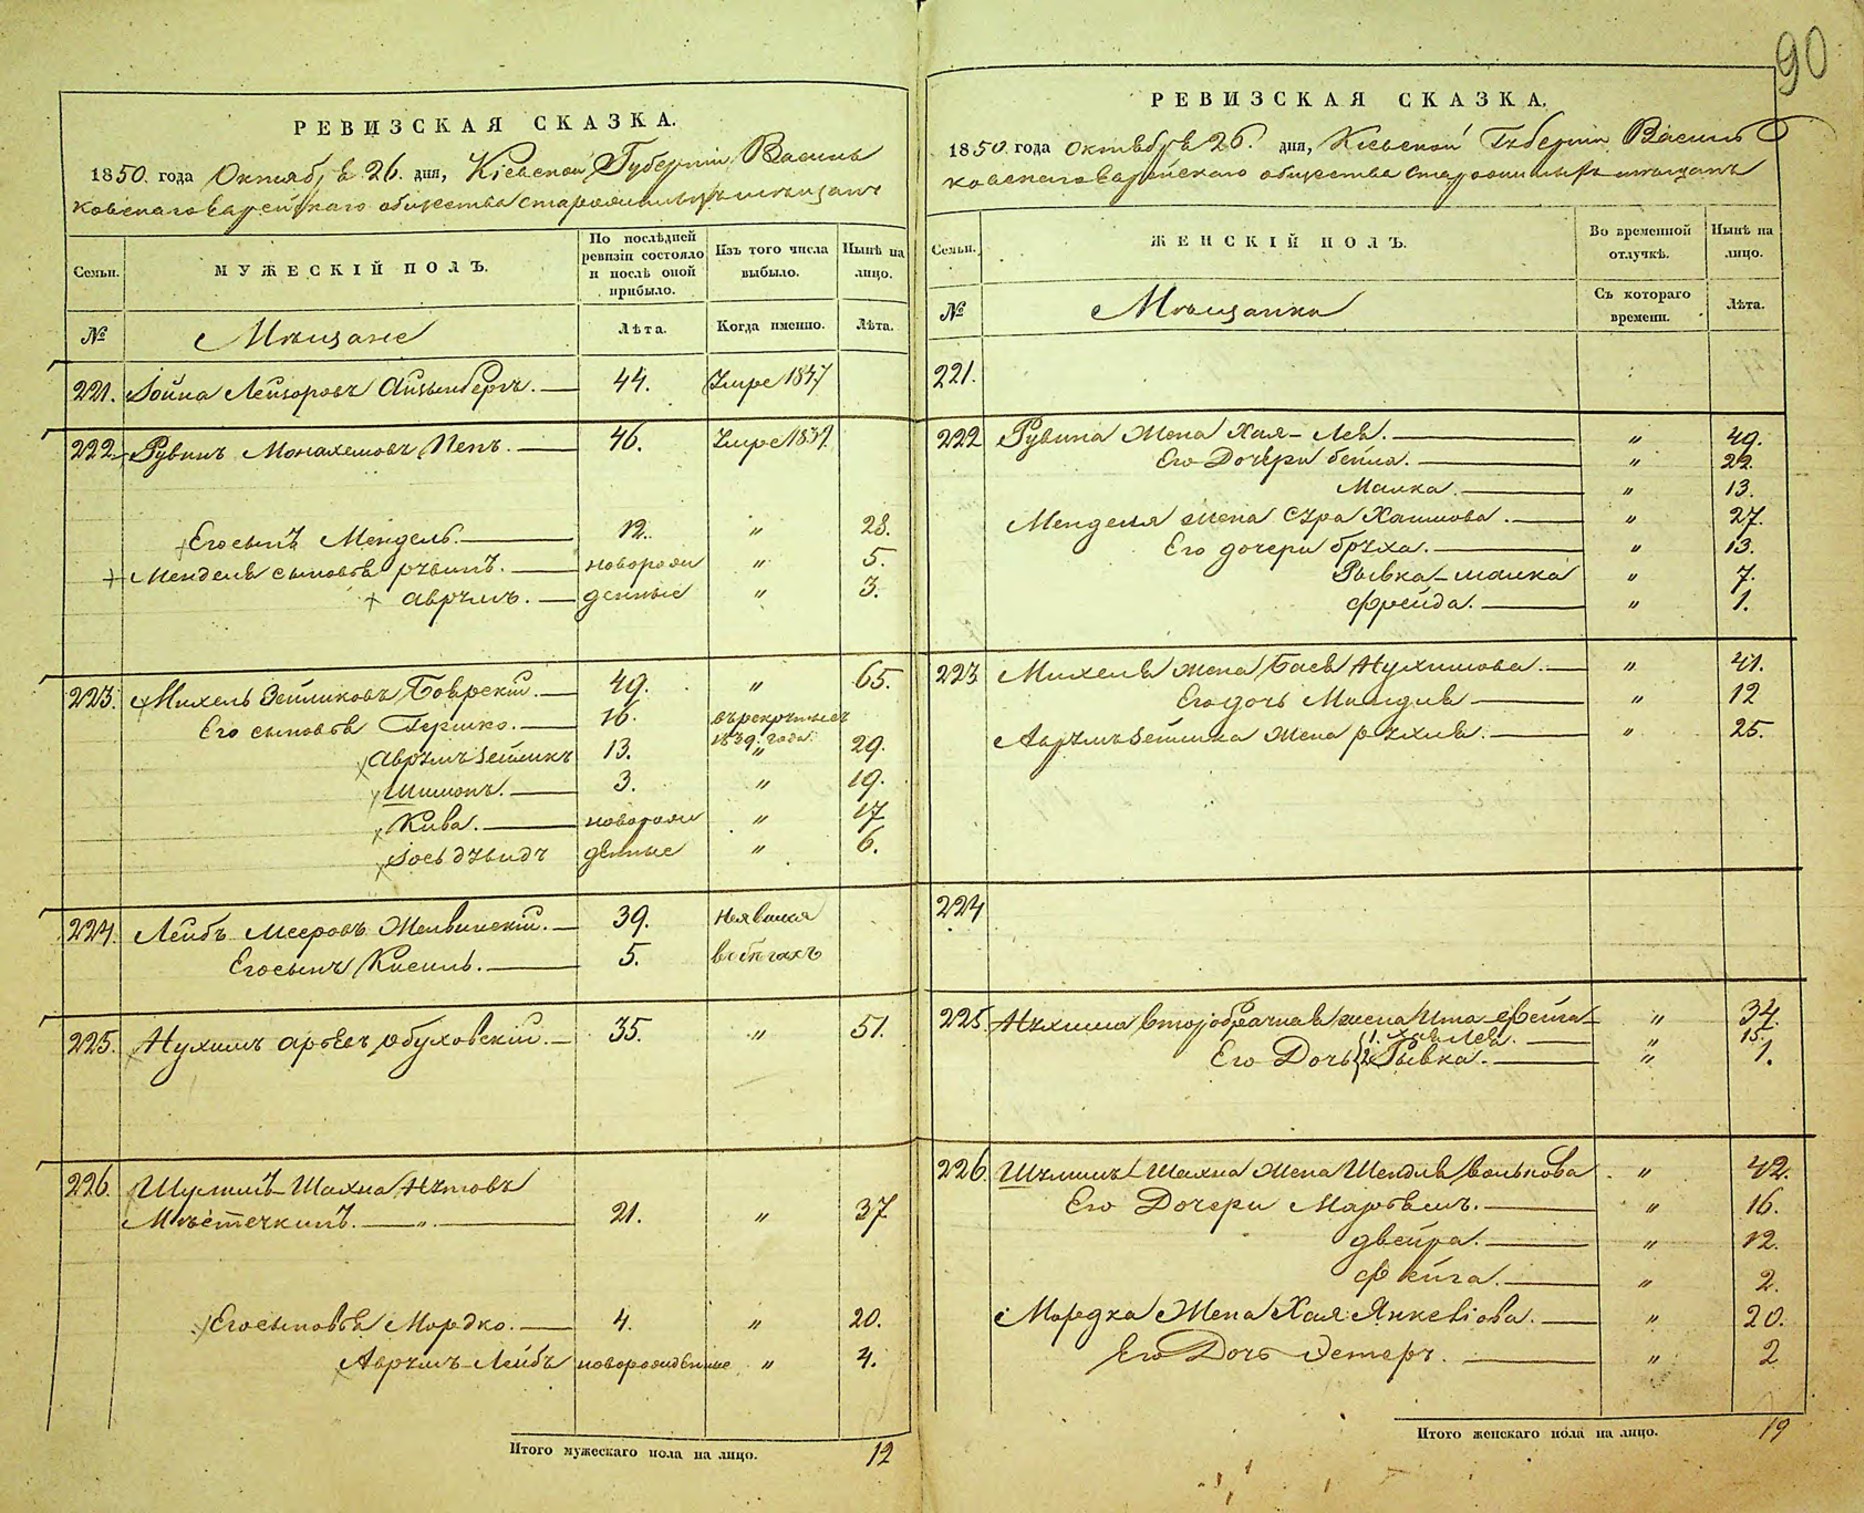 90
РЕВИЗСКАЯ СКАЗКА.
1850. года Октября 26. дня, Кіевской Губерніи Василь
ковскаго Еврейскаго общества
Семьи.
МУЖЕСКІЙ ПОЛЪ.
По послѣдней ревизіи состояло и послѣ оной прибыло.
Изъ того числа выбыло.
Нынѣ на лицо.
№
Мѣщане
Лѣта.
Когда именно.
Лѣта.
221. Іойна Лейзоровъ Айзенбергъ. 44. Умре 1847
222. Рувинъ Монахемовъ Пепъ. 46. Умре 1839
Его сынъ Мендель. 12. " 28.
Менделя сыновья Рувинъ. новорож " 5.
Аврумъ. денные " 3.
223. Михель Зейликовъ Боярскій. 49. " 65.
Его сыновья Гершко. 16. въ рекруты
1839. года.
Аврумъ Зейликъ 13. " 29.
Шимонъ. 3. " 19.
Кива. новорож " 17
Іось Дувидъ денные " 6.
224. Лейбъ Мееровъ 39. неявился
Его сынъ Кисиль. 5. въ бѣгахъ
225. Нухимъ Арьевъ Обуховскій. 35. " 51.
226. Шулимъ-Шахна Нутовъ
Мѣстечкинъ. " 21. " 37
Его сыновья Мордко. 4. " 20.
Аврумъ-Лейбъ новорожденные " 4.
Итого мужескаго пола на лицо. 12
РЕВИЗСКАЯ СКАЗКА.
1850. года Октября 26. дня, Кіевской Губерніи Василь
ковскаго Еврейскаго общества
Семьи.
ЖЕНСКІЙ ПОЛЪ.
Во временной отлучкѣ.
Нынѣ на лицо.
№
Мѣщанки
Съ котораго времени.
Лѣта.
221.
222 Рувина жена Хая-Лея. " 49.
Его дочери Бейла. " 22.
Малка. " 13.
Менделя жена Сура Хаимова. " 27.
Его дочери Бруха. " 13.
Рывка-малка " 7.
Фрейда. " 1.
223 Михеля жена Бася Нухимова. " 41.
Его дочь Миндля " 12
Аврумъ Зейлика жена Рухля. " 25.
224
225. Нухима второбрачная жена Ита-Фейга " 34.
1. Хая Лея. " 15.
Его Дочь 2. Рывка. " 1.
226. Шулимъ Шахна жена Шендля Волькова " 42.
Его Дочери Марьямъ. " 16.
Двейра. " 12.
Фейга. " 2.
Мордка Жена Хая Янкеліова. " 20.
Его Дочь Эстеръ. " 2
Итого женскаго пола на лицо. 19